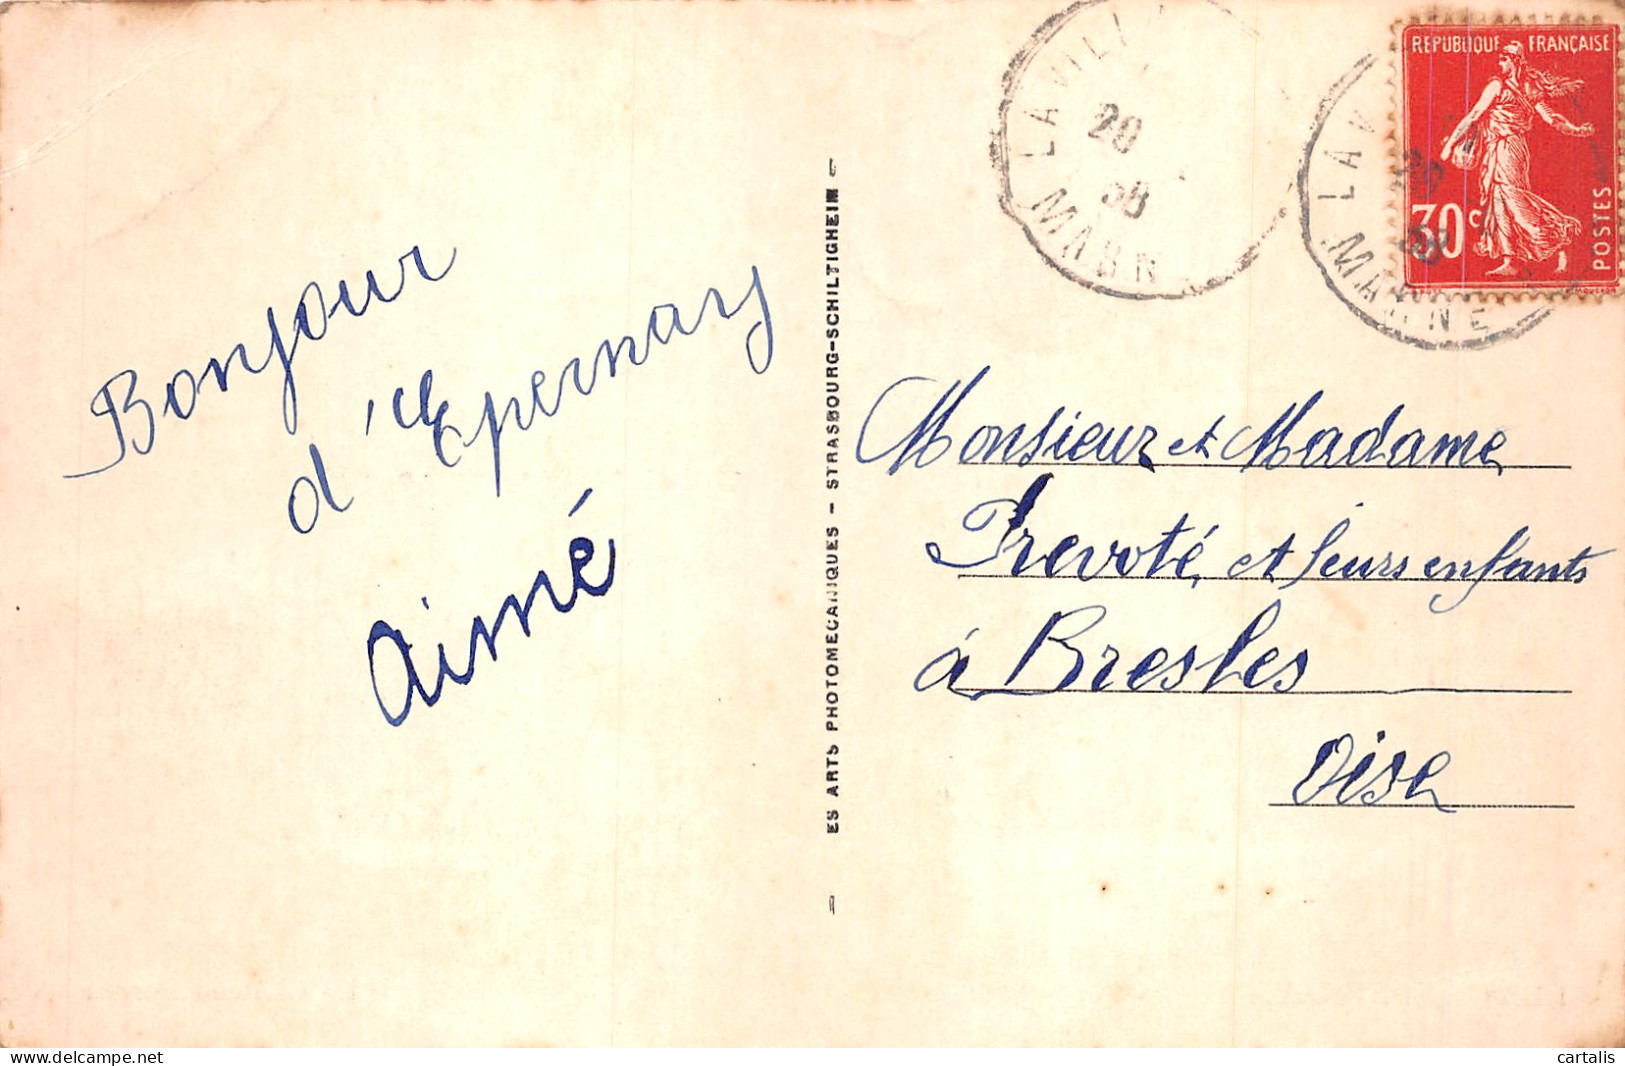 Bonjour
d'Epernay
Aimé
ES ARTS PHOTOMECANIQUES - STRASBOURG-SCHILTIGHEIM -
LAVIL
20
38
MARN
LAV
MARNE
REPUBLIQUE FRANÇAISE
30c
POSTES
Monsieur et Madame
Prevoté et leurs enfants
à Bresles
Oise
delcampe.net
cartalis